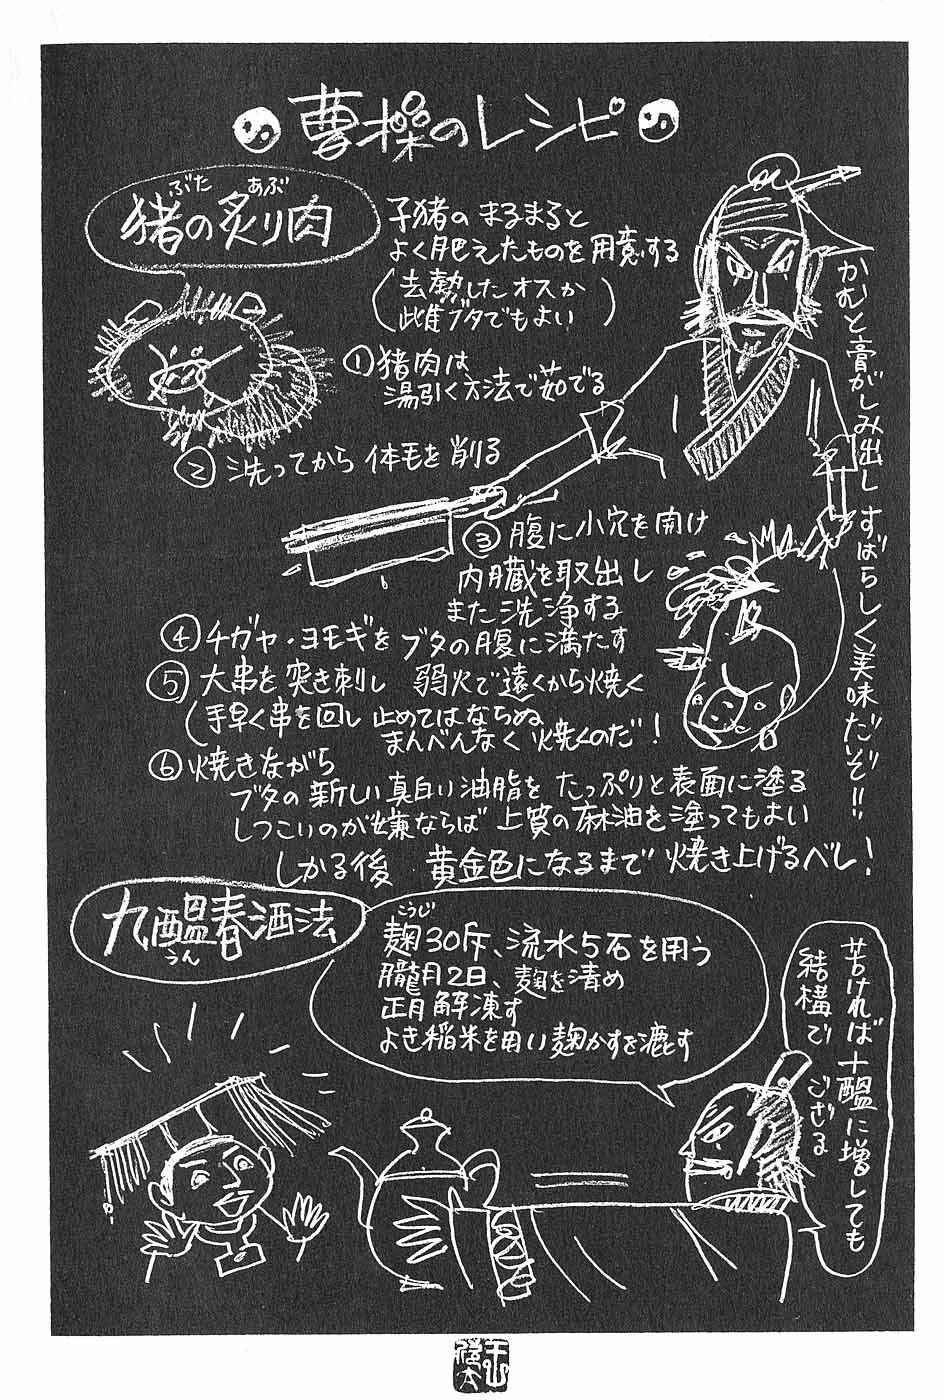 曹操のレシピ
猪の炙り肉
ぶた
あぶ
子猪の まるまると
よく肥えたものを用意する
(去勢したオスか
雌ブタでもよい)
①猪肉は
湯引く方法で茹でる
②洗ってから 体毛を削る
③腹に小穴を開け
内臓を取出し
また洗浄する
④チガヤ・ヨモギを ブタの腹に満たす
⑤大串を突き刺し 弱火で遠くから焼く
(手早く串を回し 止めてはならぬ
まんべんなく 焼くのだ!
⑥焼きながら
ブタの新しい真白い油脂を たっぷりと表面に塗る
しつこいのが嫌ならば 上質の麻油を塗ってもよい
しかる後 黄金色になるまで 焼き上げるべし!
かむと膏がしみ出し すばらしく美味だぞ!!
九醞春酒法
うん
こうじ
麹30斤、流水5石を用う
臘月2日、麹を清め
正月解凍す
よき稲米を用い麹かすを漉す
苦ければ十醞に増しても
結構で
ござる